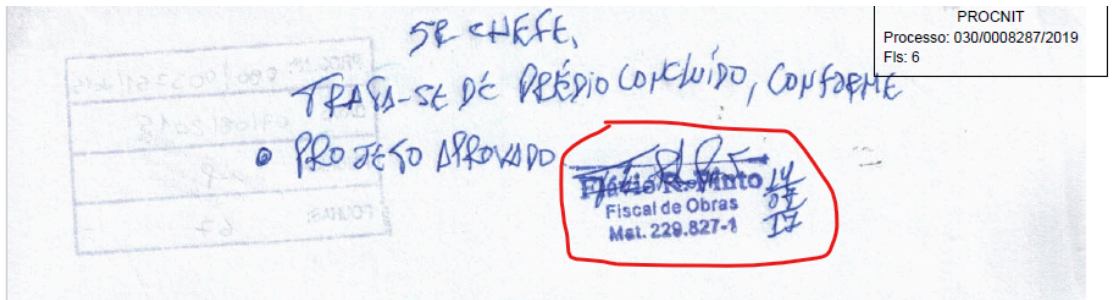 PROCNIT
Processo: 030/0008287/2019
Fls: 6
SR CHEFE,
TRATA-SE DE PRÉDIO CONCLUÍDO, CONFORME
O PROJETO APROVADO
Flávio R. Pinto
Fiscal de Obras
Mat. 229.827-1
14
07
17